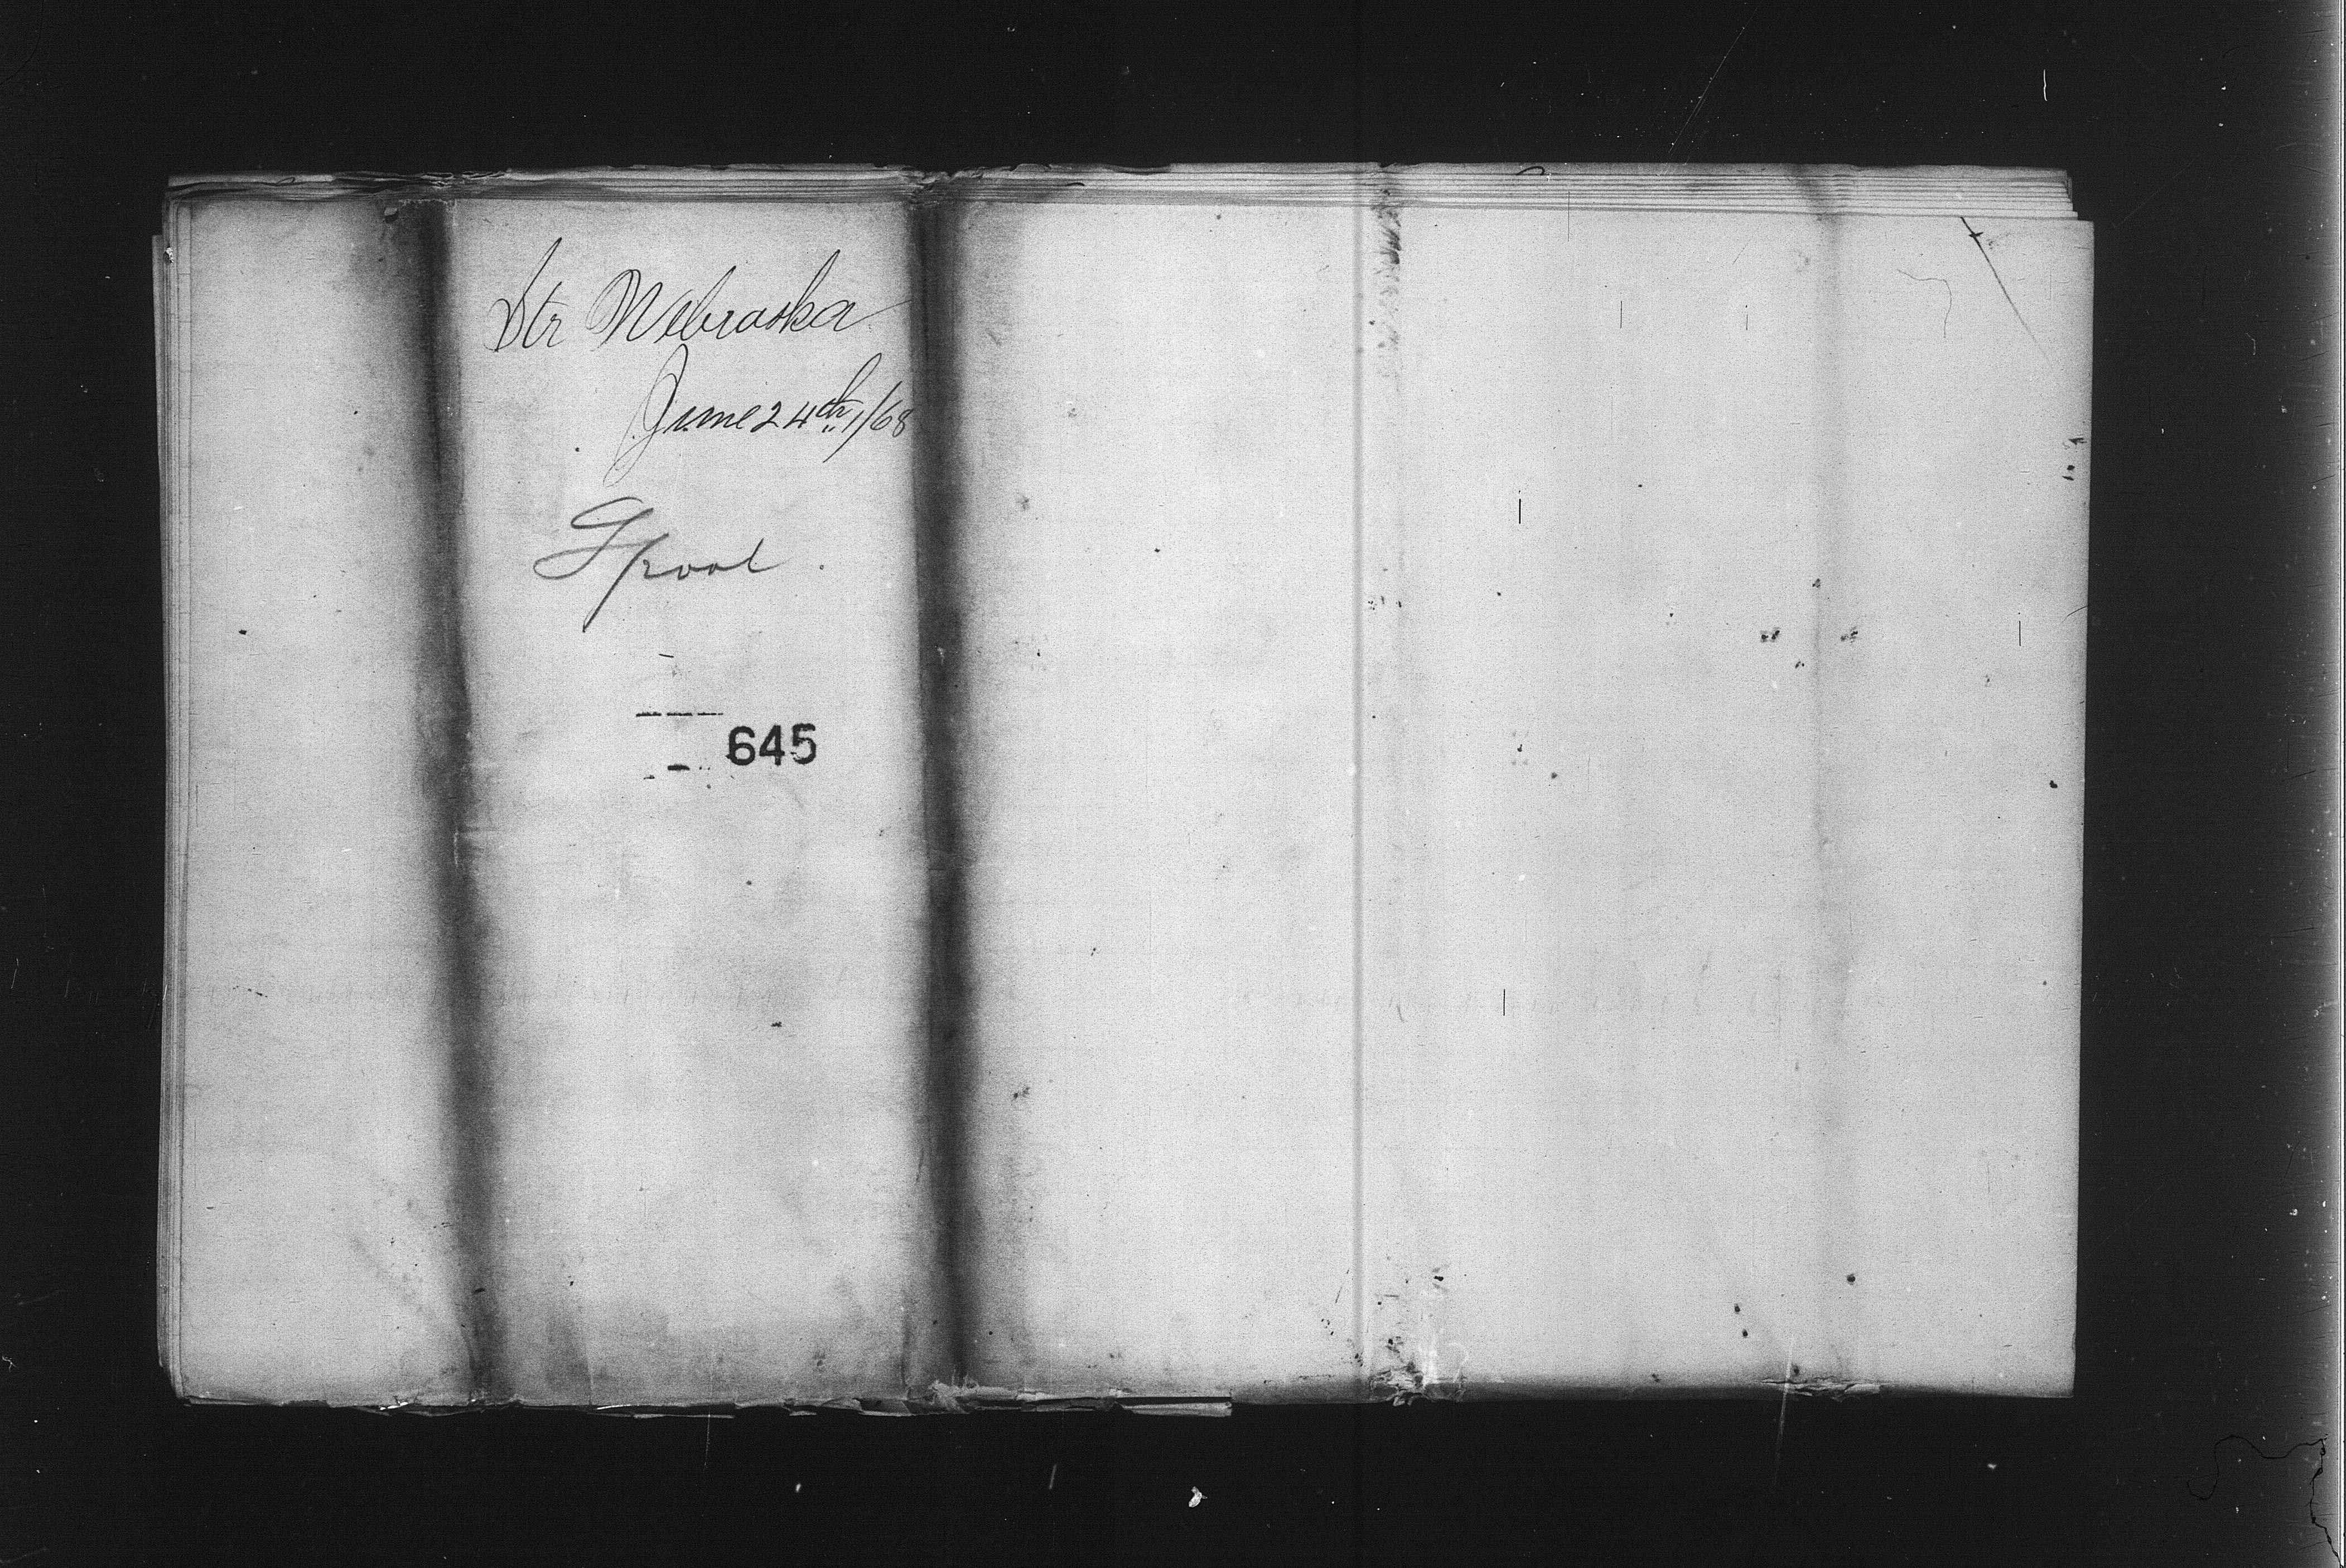 Str Nebraska
June 24th 1/68
Lpool
645